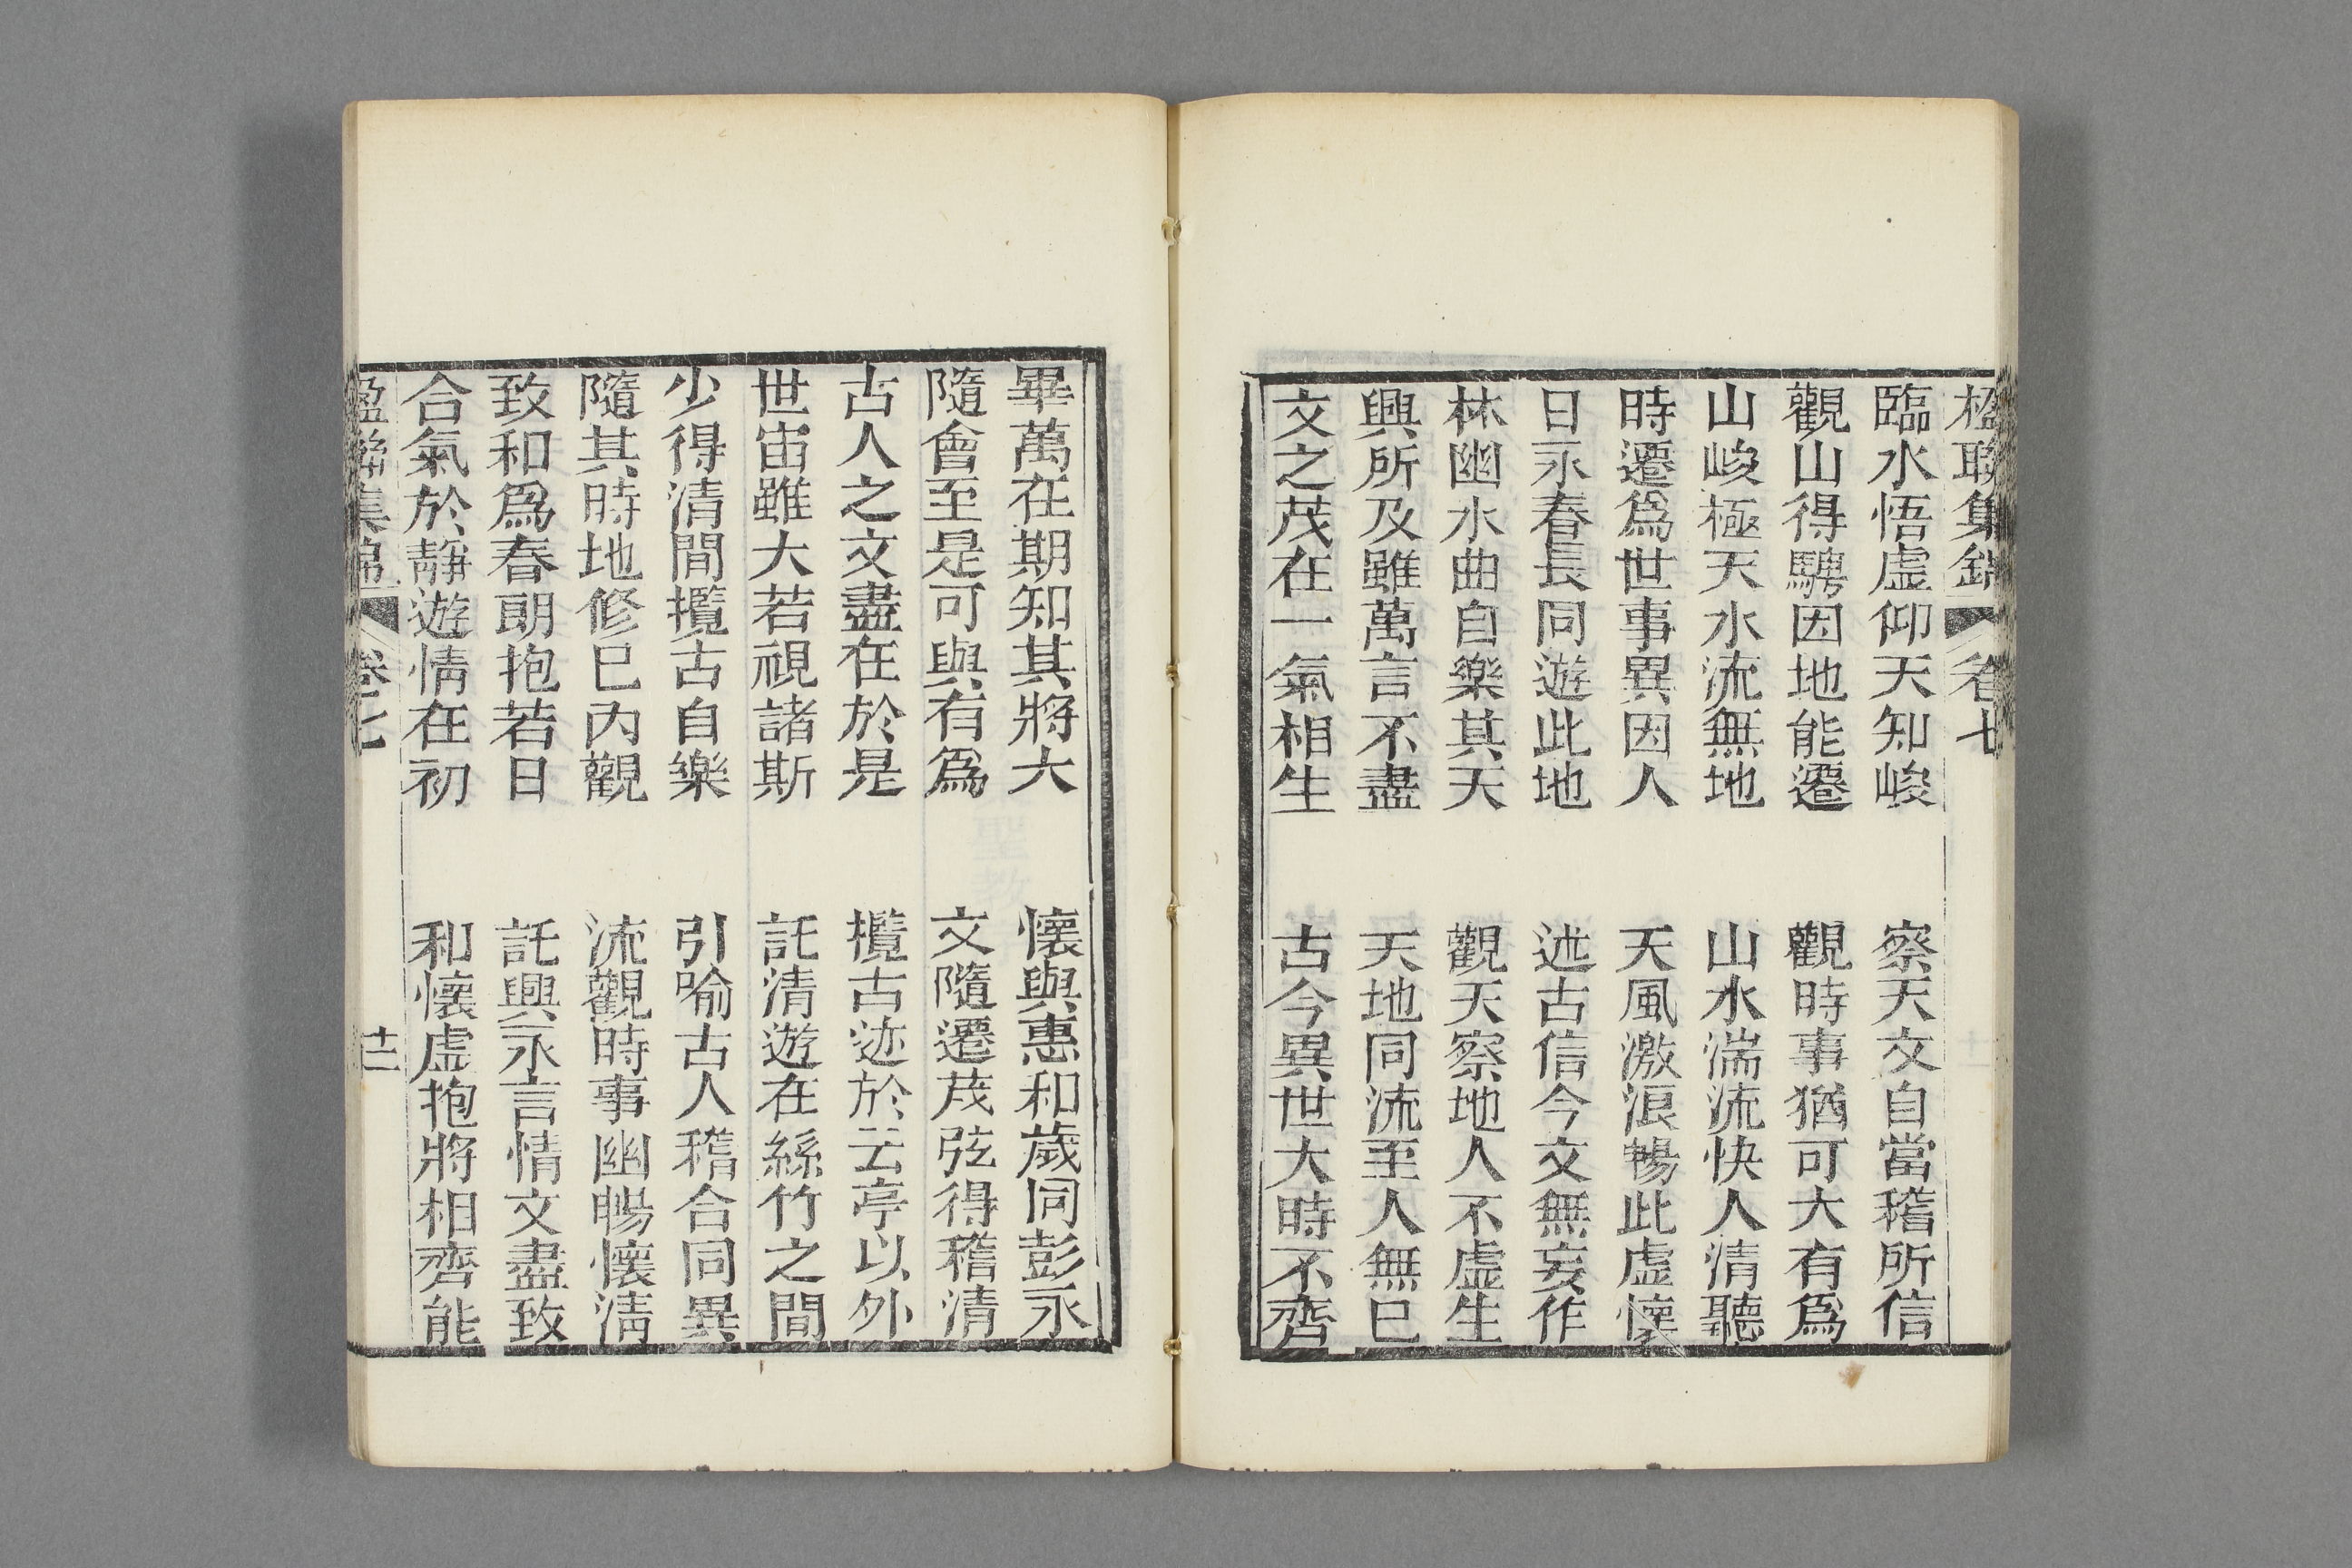 楹聯集錦 卷七
臨水悟虛仰天知峻 察天文自當稽所信
觀山得騁因地能遷 觀時事猶可大有爲
山峻極天水流無地 山水湍流快人清聽
時遷爲世事異因人 天風激浪暢此虛懷
日永春長同遊此地 述古信今文無妄作
林幽水曲自樂其天 觀天察地人不虛生
興所及雖萬言不盡 天地同流至人無已
文之茂在一氣相生 古今異世大時不齊
畢萬在期知其將大 懷與惠和歲同彭永
隨會至是可與有爲 文隨遷茂弦得稽清
古人之文盡在於是 攬古迹於云亭以外
世宙雖大若視諸斯 託清遊在絲竹之間
少得清間攬古自樂 引喻古人稽合同異
隨其時地修已內觀 流觀時事幽暢懷清
致和爲春朗抱若日 託興永言情文盡致
合氣於靜遊情在初 和懷虛抱將相齊能
楹聯集錦 卷七 十二